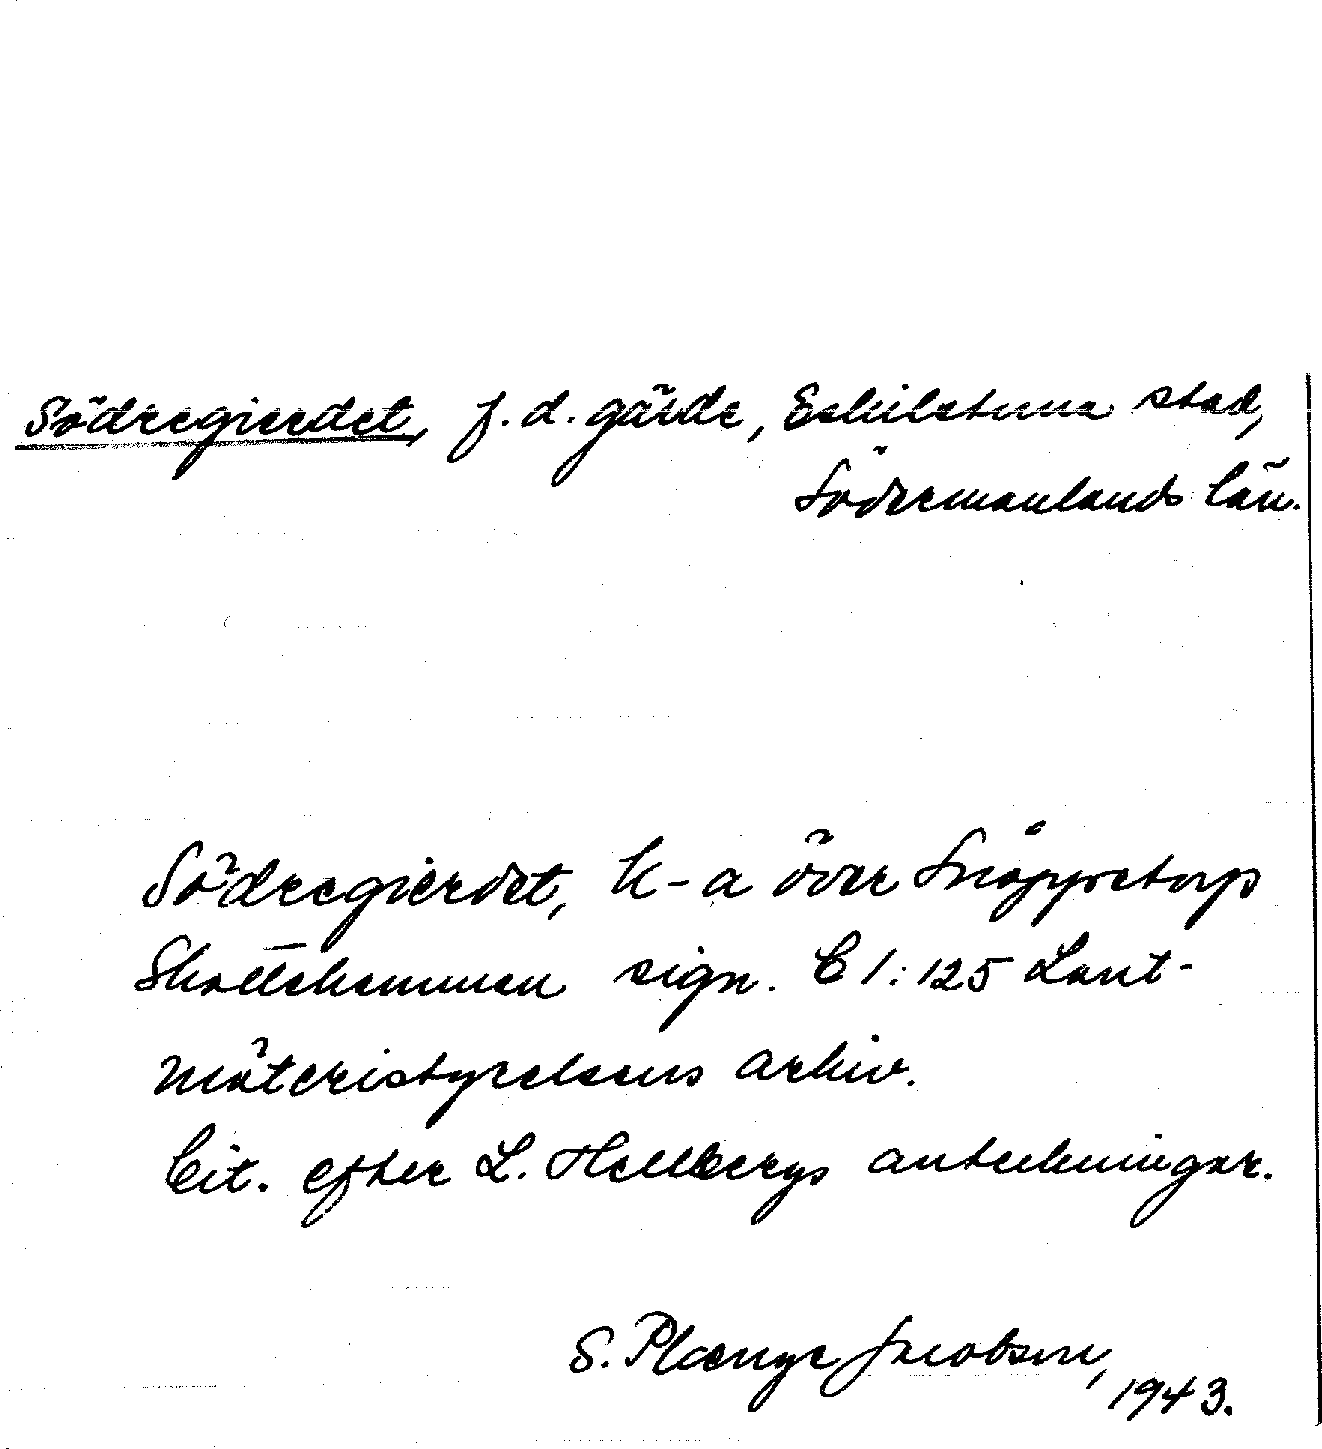 Södregierdet, f.d. gärde, Eskilstuna stad,
Södermanlands län.
Södregierdet, k-a över Snopptorp
Skattehemman sign. C 1:125 Lant-
mäteristyrelsens arkiv.
Cit. efter L. Hellbergs anteckningar.
S. Plænge Jacobson,
1943.